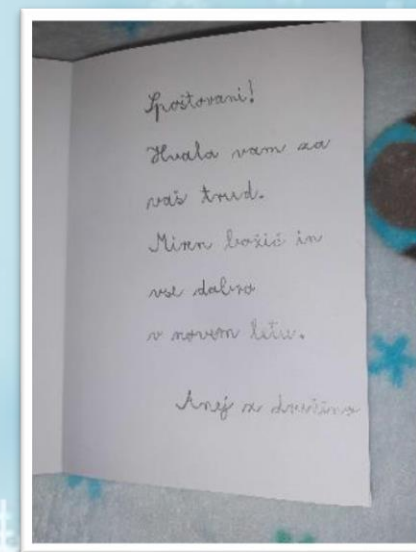 Spoštovani!
Hvala vam za
vaš trud.
Miren božič in
vse dobro
v novem letu.
Anej z družino